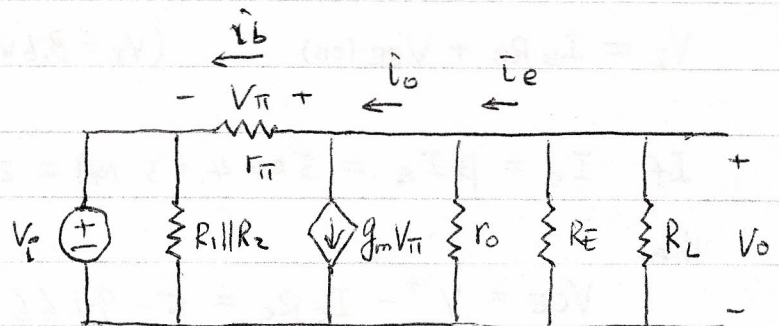 îb
- Vπ +
îo
īe
rπ
Vi
R1||R2
gmVπ
ro
RE
RL
+
Vo
-